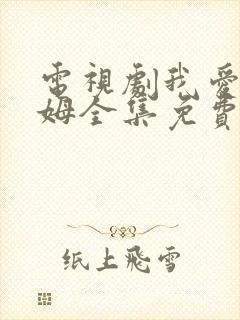 電視劇我愛
姆全集免費
纸上飛雪